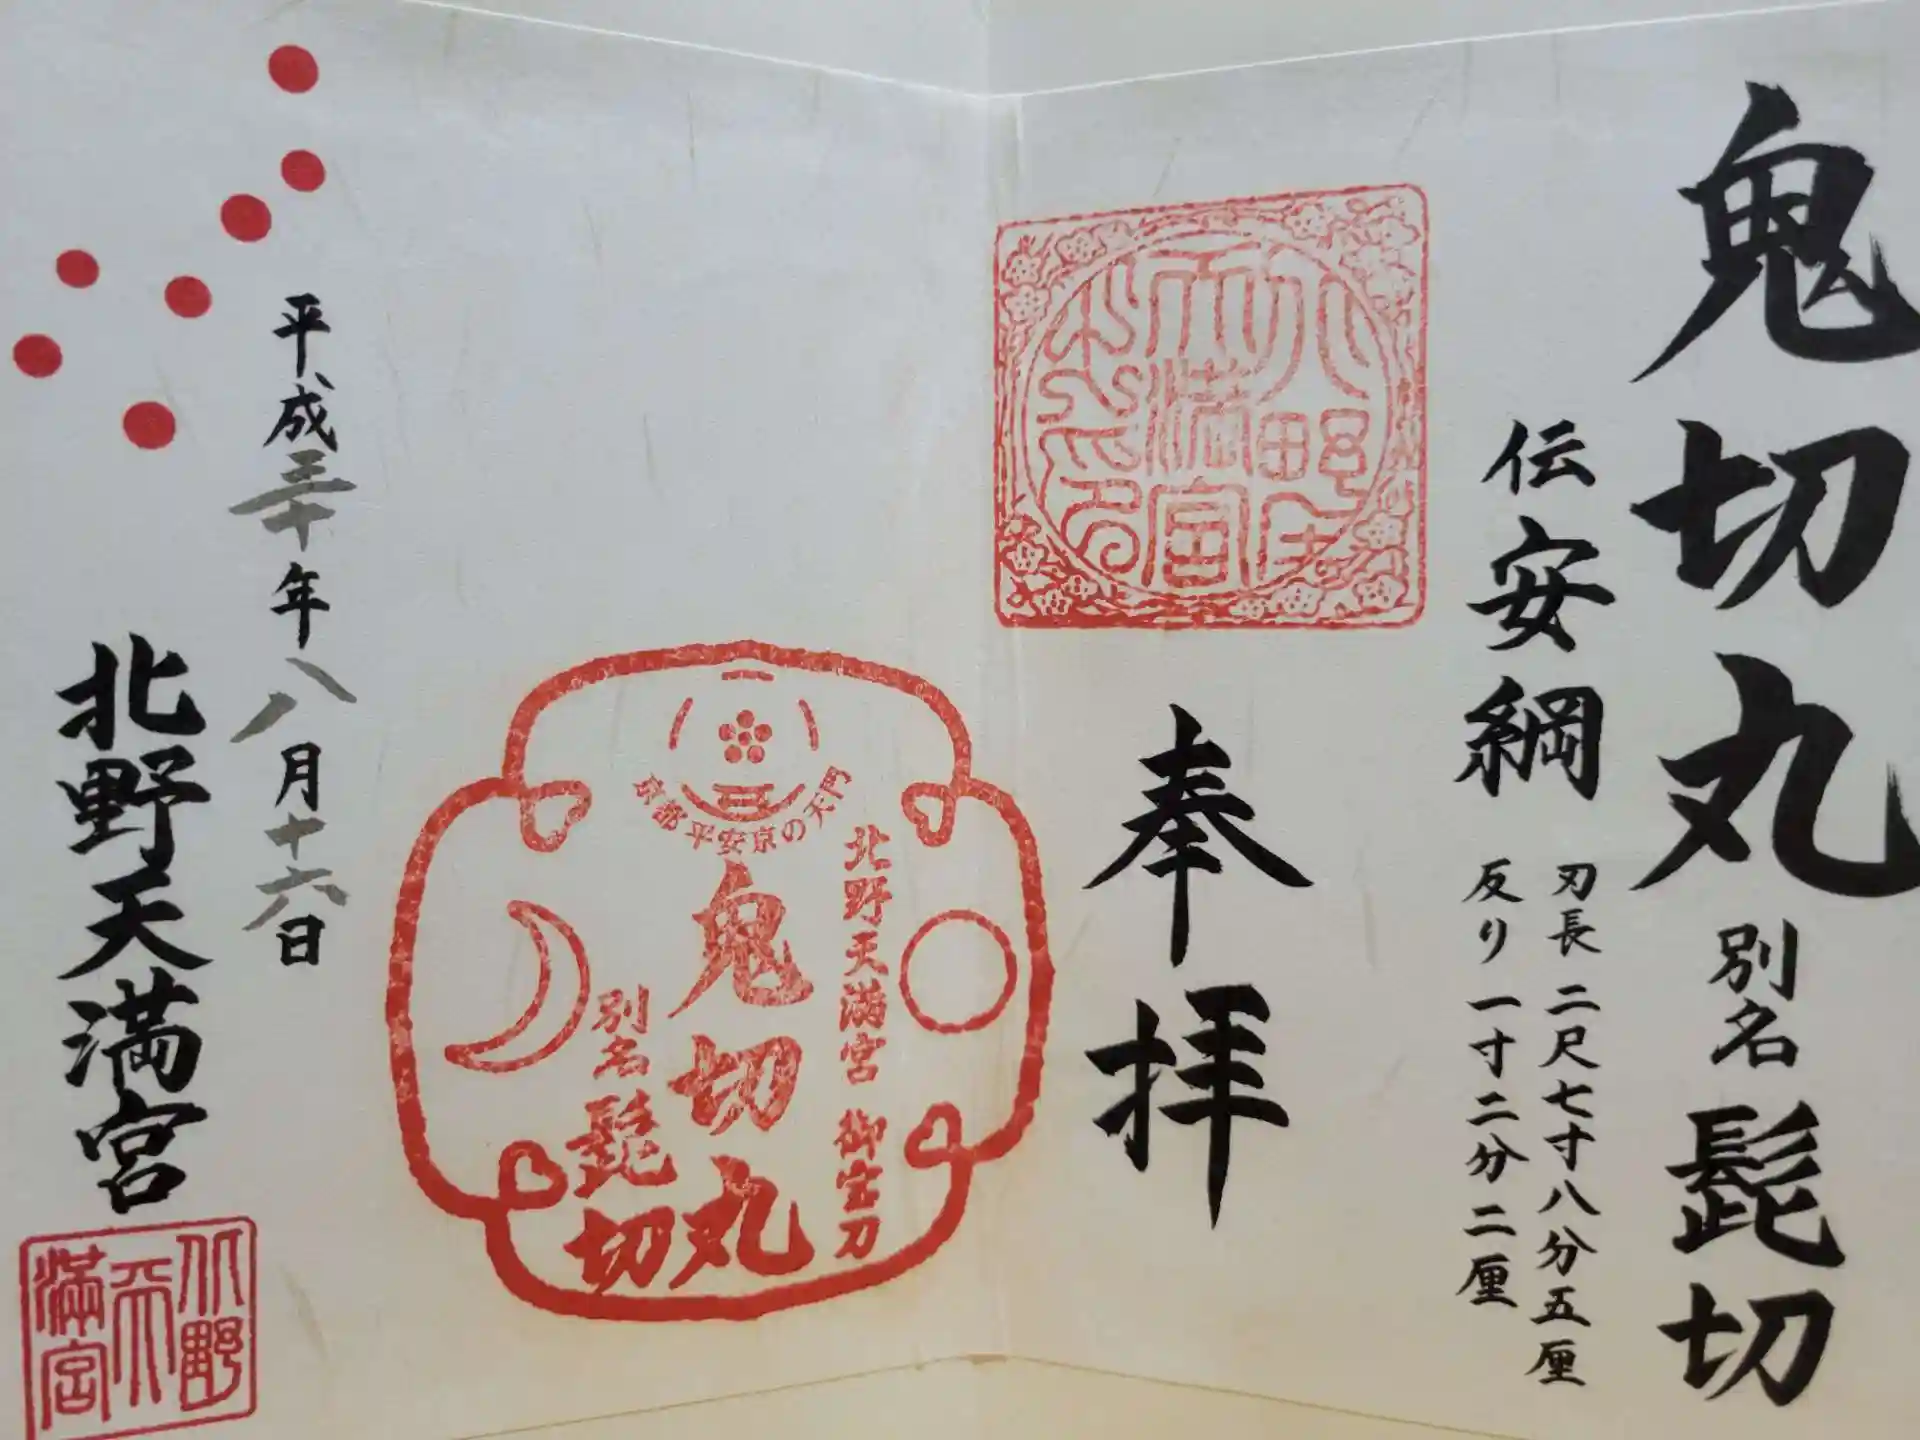 鬼切丸 別名 髭切
伝安綱
刃長 二尺七寸八分五厘
反り 一寸二分二厘
奉拝
北野天満宮 御宝刀
京都 平安京の天門
鬼切丸
別名 髭切
平成三十年八月十六日
北野天満宮
北野
天
満宮